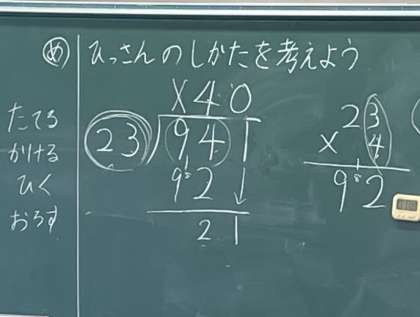 め ひっさんのしかたを考えよう
たてる
かける
ひく
おろす
×40
23)941
92↓
21
23
×4
92